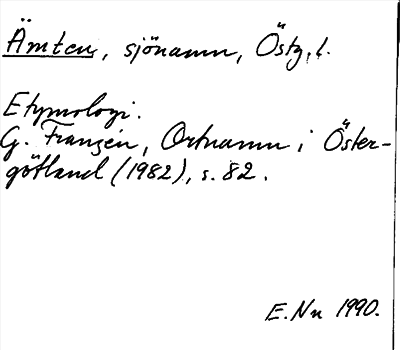 Ämten, sjönamn, Östg.l.
Etymologi.
G. Franzén, Ortnamn i Öster-
götland (1982), s. 82.
E.Nn 1990.